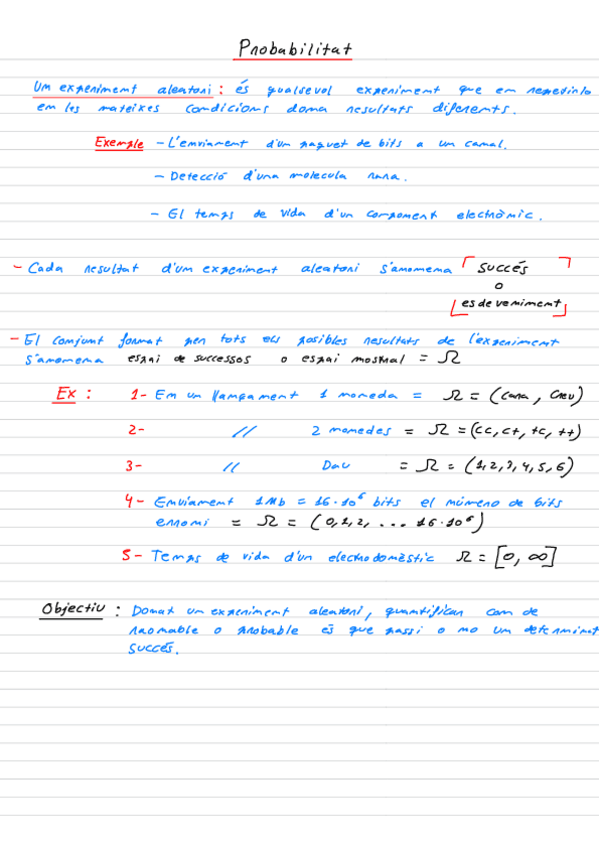 Probabilitat
Un experiment aleatori : és qualsevol experiment que en repetirlo
en les mateixes condicions dona resultats diferents.
Exemple - L'enviament d'un paquet de bits a un canal.
- Detecció d'una molecula rara.
- El temps de vida d'un component electrònic.
- Cada resultat d'un experiment aleatori s'anomena succés
o
esdeveniment
- El conjunt format per tots els posibles resultats de l'experiment
s'anomena espai de successos o espai mostral = Ω
Ex : 1- En un llançament 1 moneda = Ω = (cara, creu)
2- // 2 monedes = Ω = (cc, c+, +c, ++)
3- // Dau = Ω = (1,2,3,4,5,6)
4- Enviament 1Mb = 16·10⁶ bits el número de bits
erroni = Ω = (0,1,2, ... 16·10⁶)
5- Temps de vida d'un electrodomèstic Ω = [0, ∞]
Objectiu : Donat un experiment aleatori, quantificar com de
raonable o probable és que passi o no un determinat
succés.